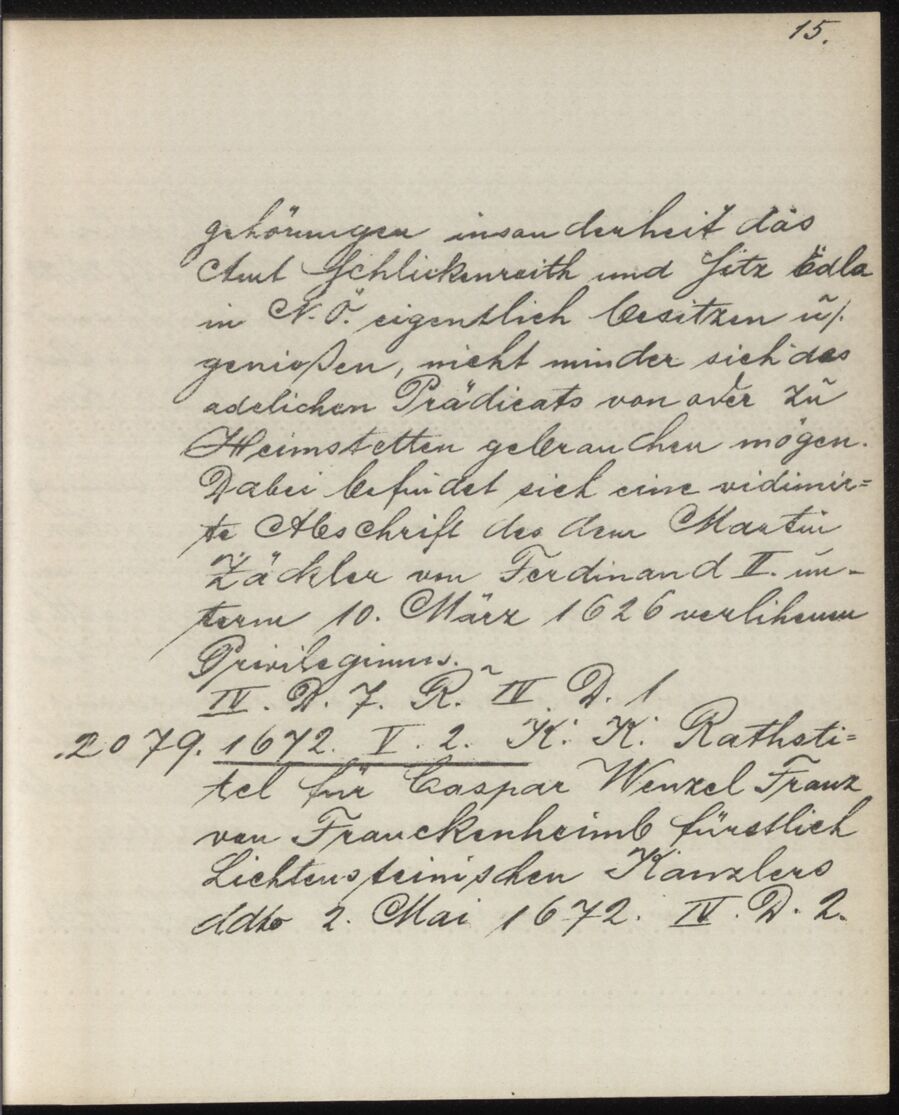 15.
gehörungen insonderheit das
Amt Schlickenreith und Sitz Ödla
in N.Ö. eigentlich besitzen u/.
genießen, nicht minder sich des
adelichen Prädicats von oder zu
Heimstetten gebrauchen mögen.
Dabei befindet sich eine vidimir=
te Abschrift des dem Martin
Zäckler von Ferdinand II. un-
term 10. März 1626 verlihenen
Privilegiums.
IV. D. 7. R. IV. D. 1
2079. 1672. V. 2. K. K. Rathsti=
tel für Caspar Wenzel Franz
von Franckenheimb fürstlich
Lichtensteinischen Kanzlers
ddto 2. Mai 1672. IV. D. 2.